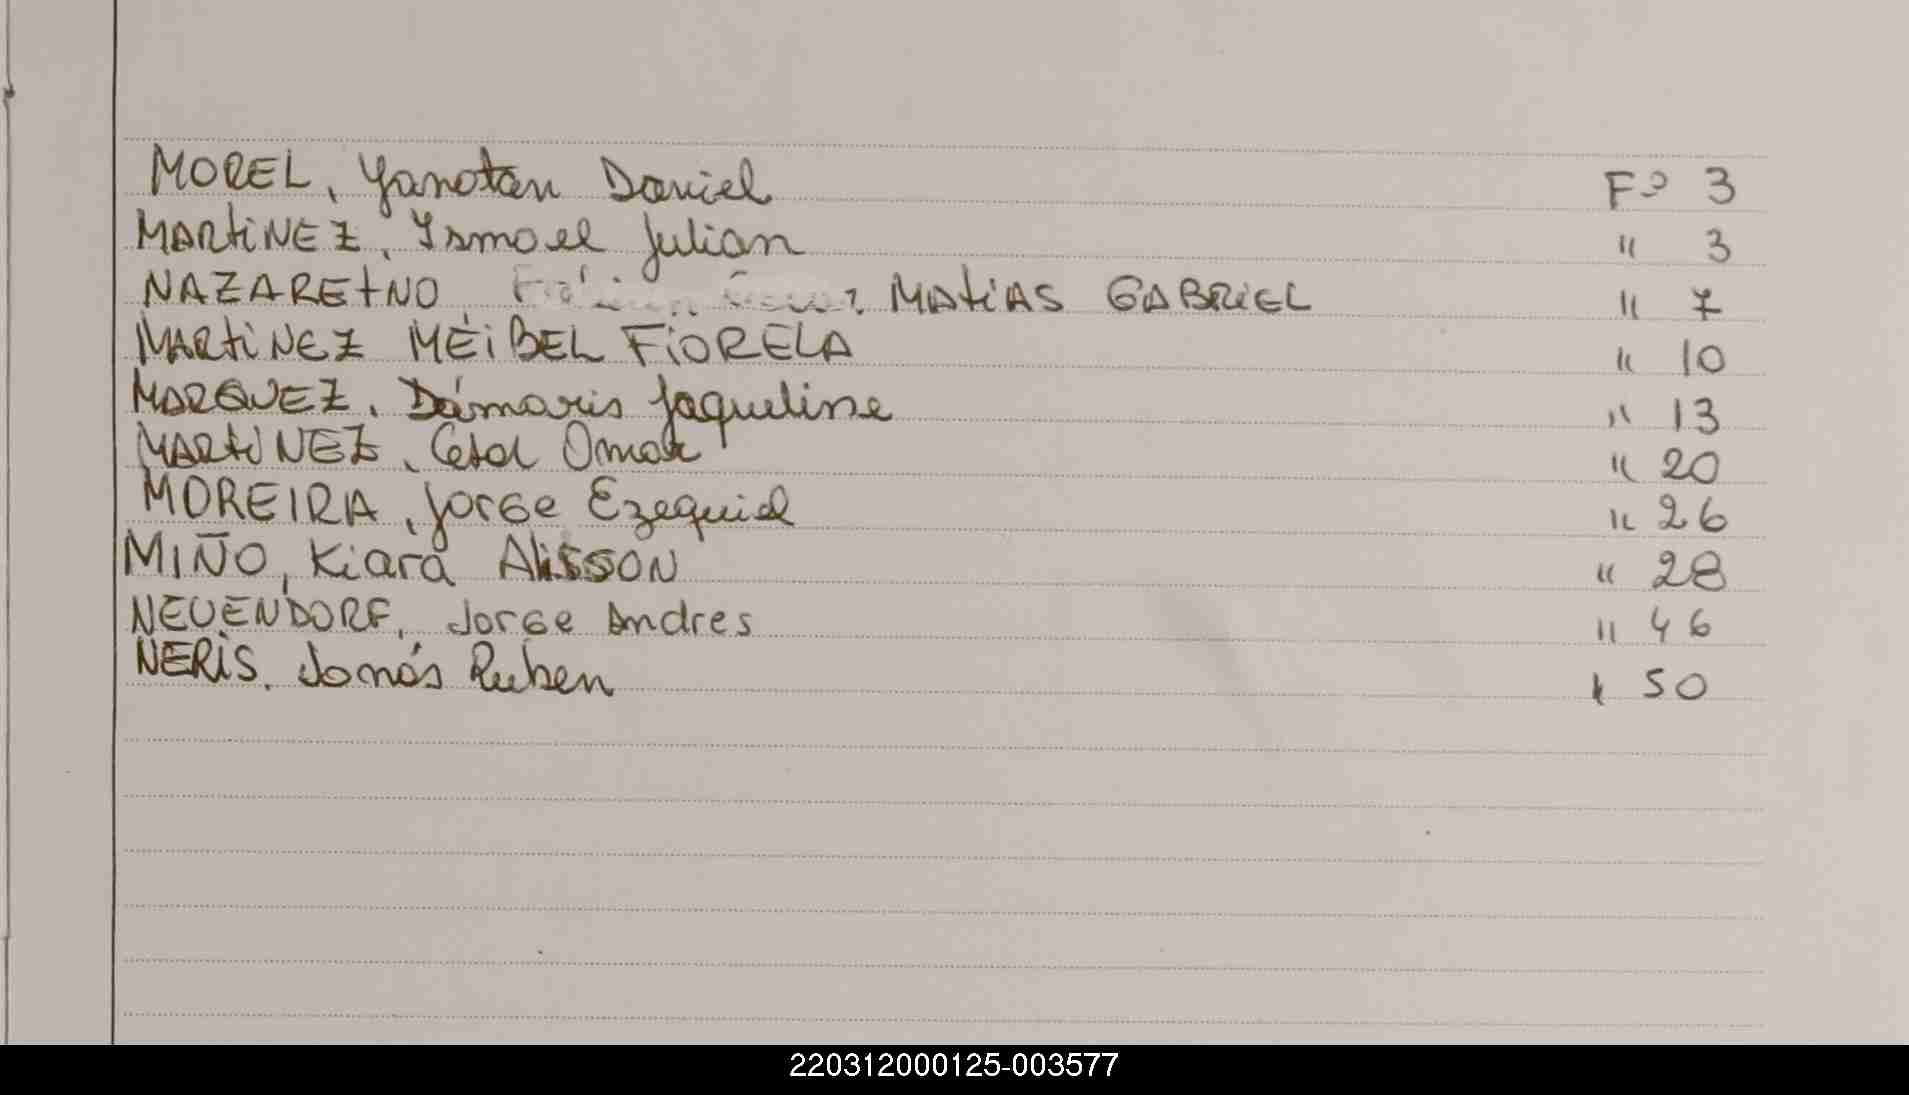 MOREL, Yanotan Daniel F° 3
MARtiNEZ, Ismael Julian " 3
NAZAREtNO MAtiAS GABRiEL " 7
MARtiNEZ MÉiBEL FiORELA " 10
MARQUEZ, Dámaris Jaqueline " 13
MARtiNEZ, Omar " 20
MOREIRA, Jorge Ezequiel " 26
MIÑO, Kiara AlissON " 28
NEUENDORF, Jorge Andres " 46
NERiS, Jonás Ruben " 50
220312000125-003577